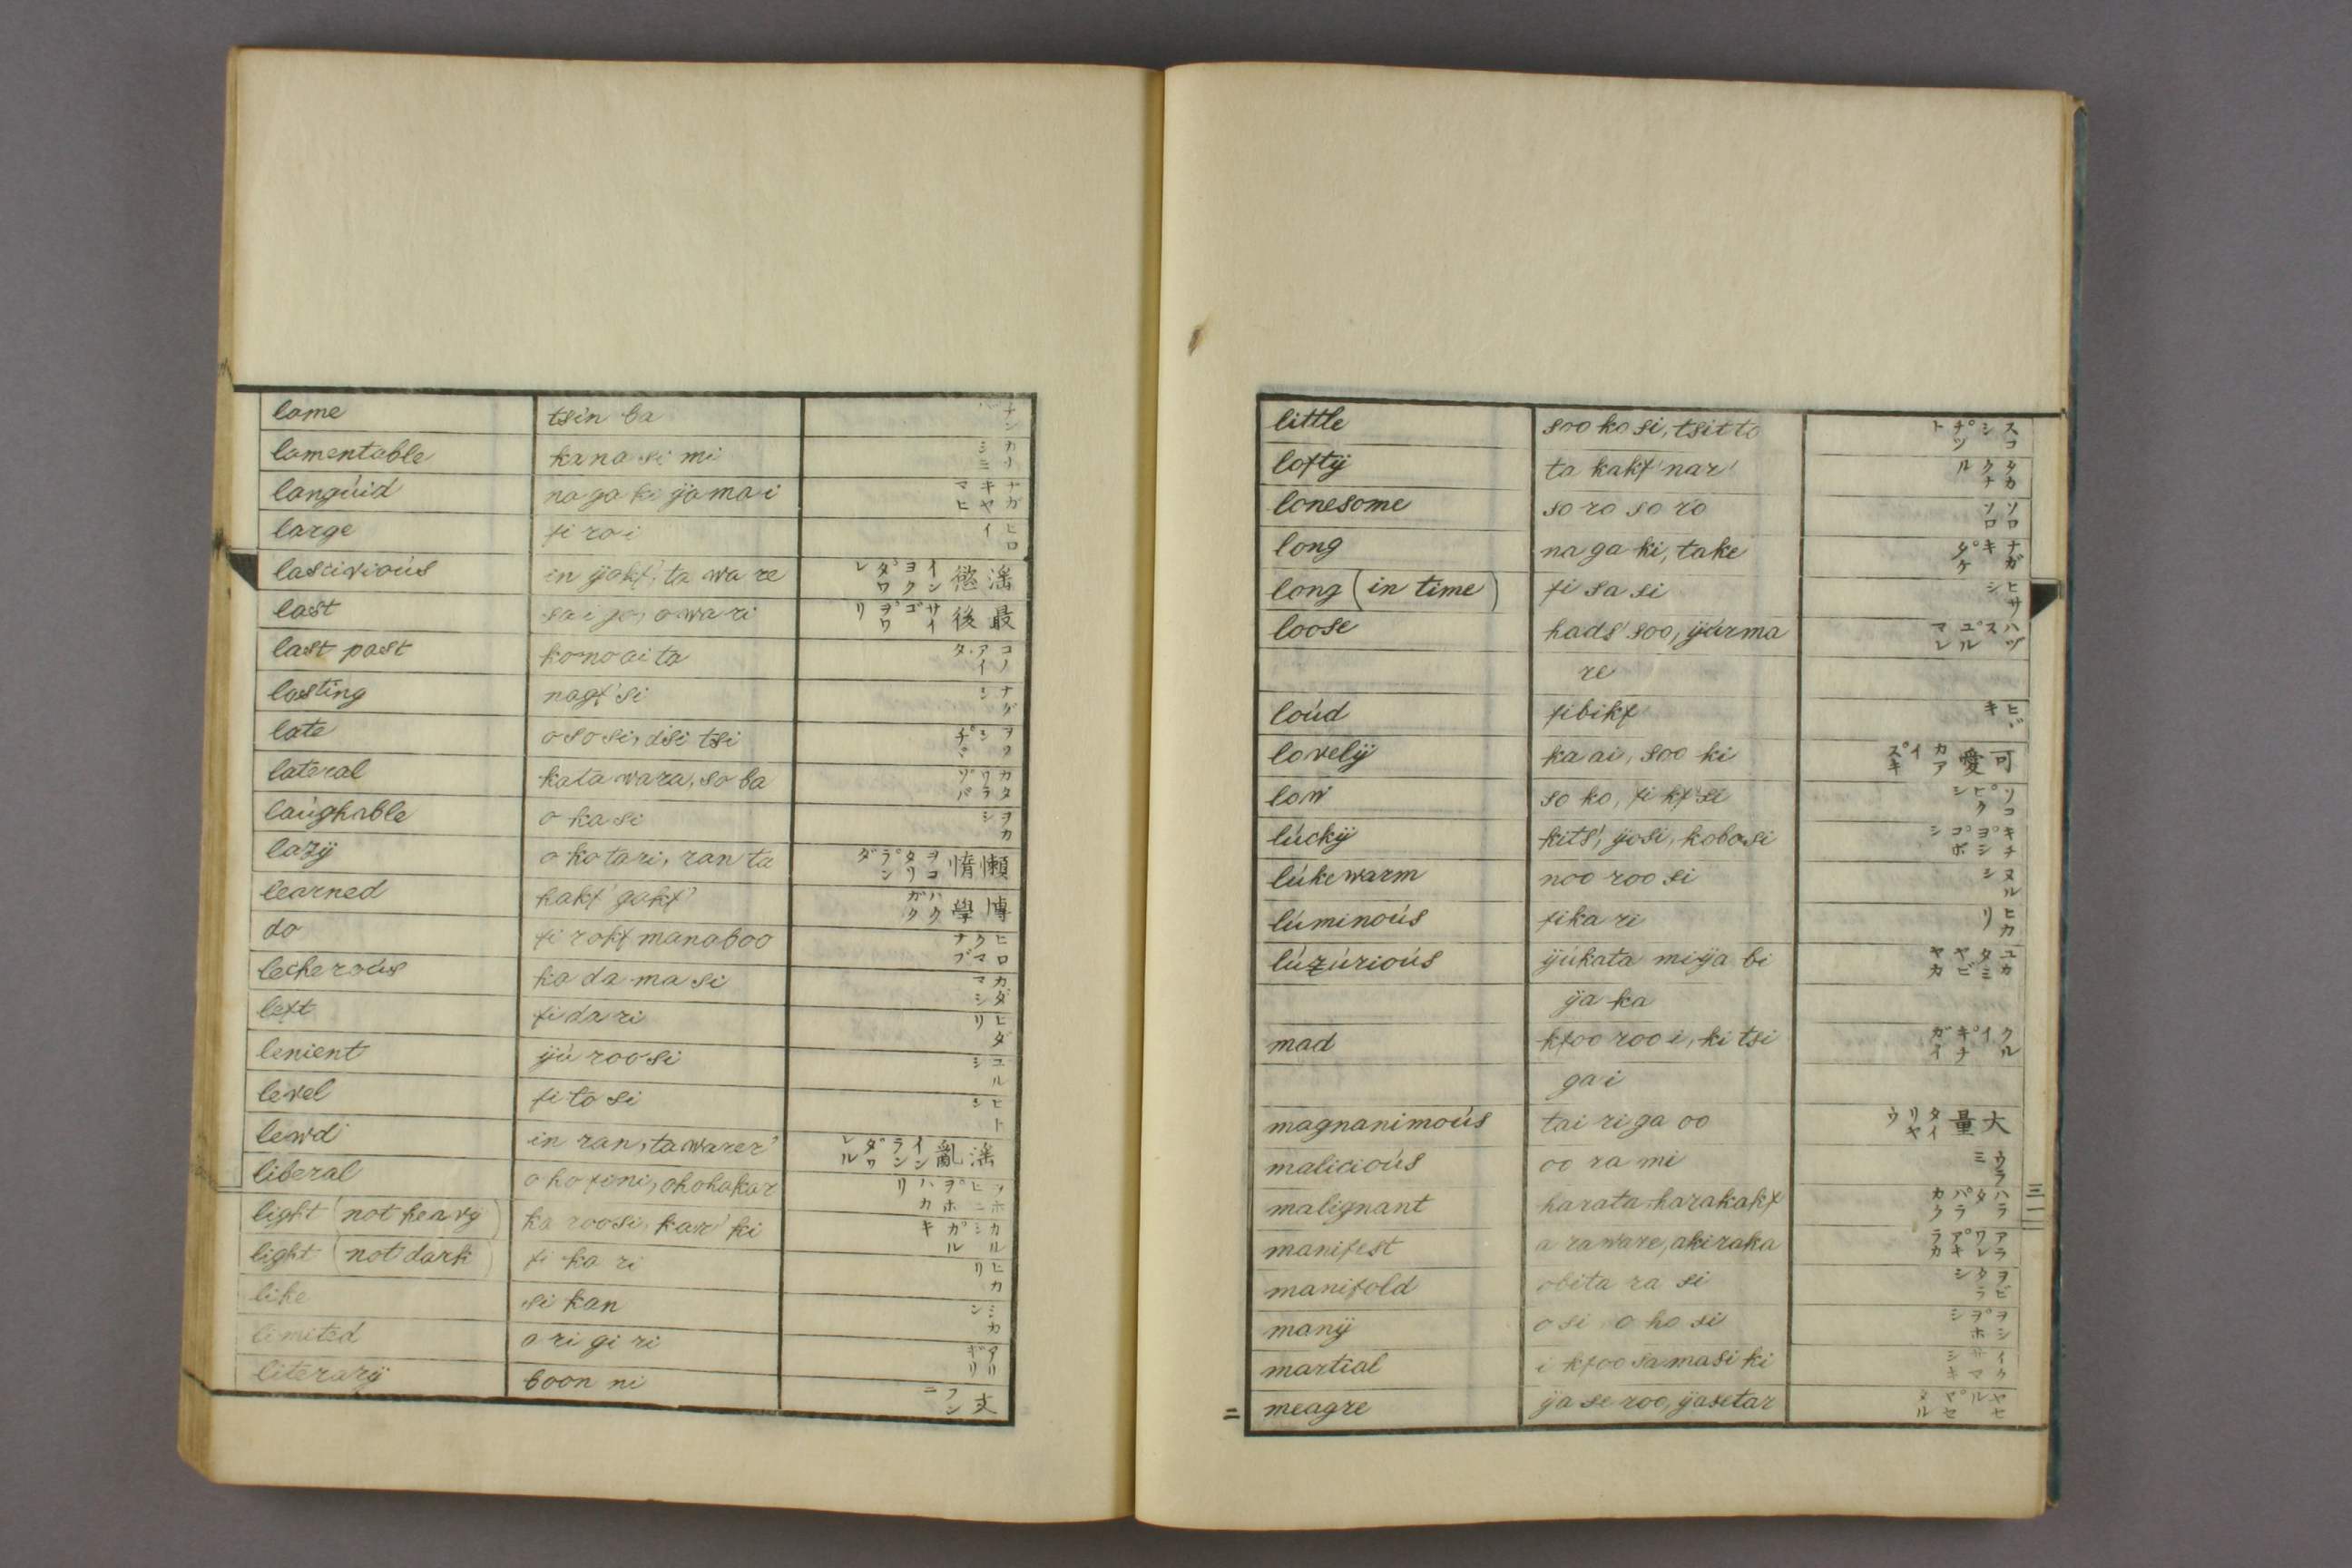 lame tsin ba
lamentable kana si mi カナシミ
langúid na ga ki ÿamai ナガキヤマヒ
large fi ro i ヒロイ
lascivioús in ÿokf', ta wa re 淫慾 インヨクタワレ
last sai go, owari 最後 サイゴヲワリ
last past kono aita コノアイタ
lasting nagf'si ナグシ
late ososi, dsi tsi
lateral kata wara, so ba カタワラソバ
laúghable o ka si ヲカシ
lazÿ o kotari, ran ta 懶惰 ヲコタリランダ
learned hakf' gakf' 博學 ハクガク
do fi rokf manaboo ヒロクマナブ
lecheroús ka da ma si カダマシ
left fidari ヒダリ
lenient ÿú roo si ユルシ
level fito si ヒトシ
lewd in ran, tawarer' 淫亂 インランタワレル
liberal
light (not heavÿ) ka roosi, kar' ki カルシカルキ
light (not dark) fi ka ri ヒカリ
like si kan シカン
limited a ri gi ri アリギリ
literarÿ boon ni 文 フンニ
little soo ko si, tsitto スコシチツト
loftÿ ta kakf' nar' タカクナル
lonesome so ro so ro ソロソロ
long na ga ki, take ナガキタケ
long (in time) fi sa si ヒサシ
loose hads' soo, ÿúrma ハヅスユルマレ
re
loúd fibikf ヒビキ
lovelÿ ka ai, soo ki 可愛 カアイスキ
low so ko, fi kf'si ソコヒクシ
lúckÿ kits', ÿosi, kobosi キチヨシコボシ
lúkewarm noo roo si ヌルシ
lúminoús fika ri ヒカリ
lúxúrioús ÿúkata miÿa bi ユカタミヤビヤカ
ÿa ka
mad kfoo roo i, ki tsi クルイキチガイ
ga i
magnanimoús tai riga oo 大量 タイリヤウ
malicioús oo ra mi ウラミ
malignant harata harakakf ハラタハラカク
manifest a raware, akiraka アラワレアキラカ
manifold obita ra si ヲビタラシ
manÿ o si o ho si ヲシヲホシ
martial i kfoo samasi ki イクサマシキ
meagre ÿa se roo, ÿasetar ヤセルヤセタル
三一